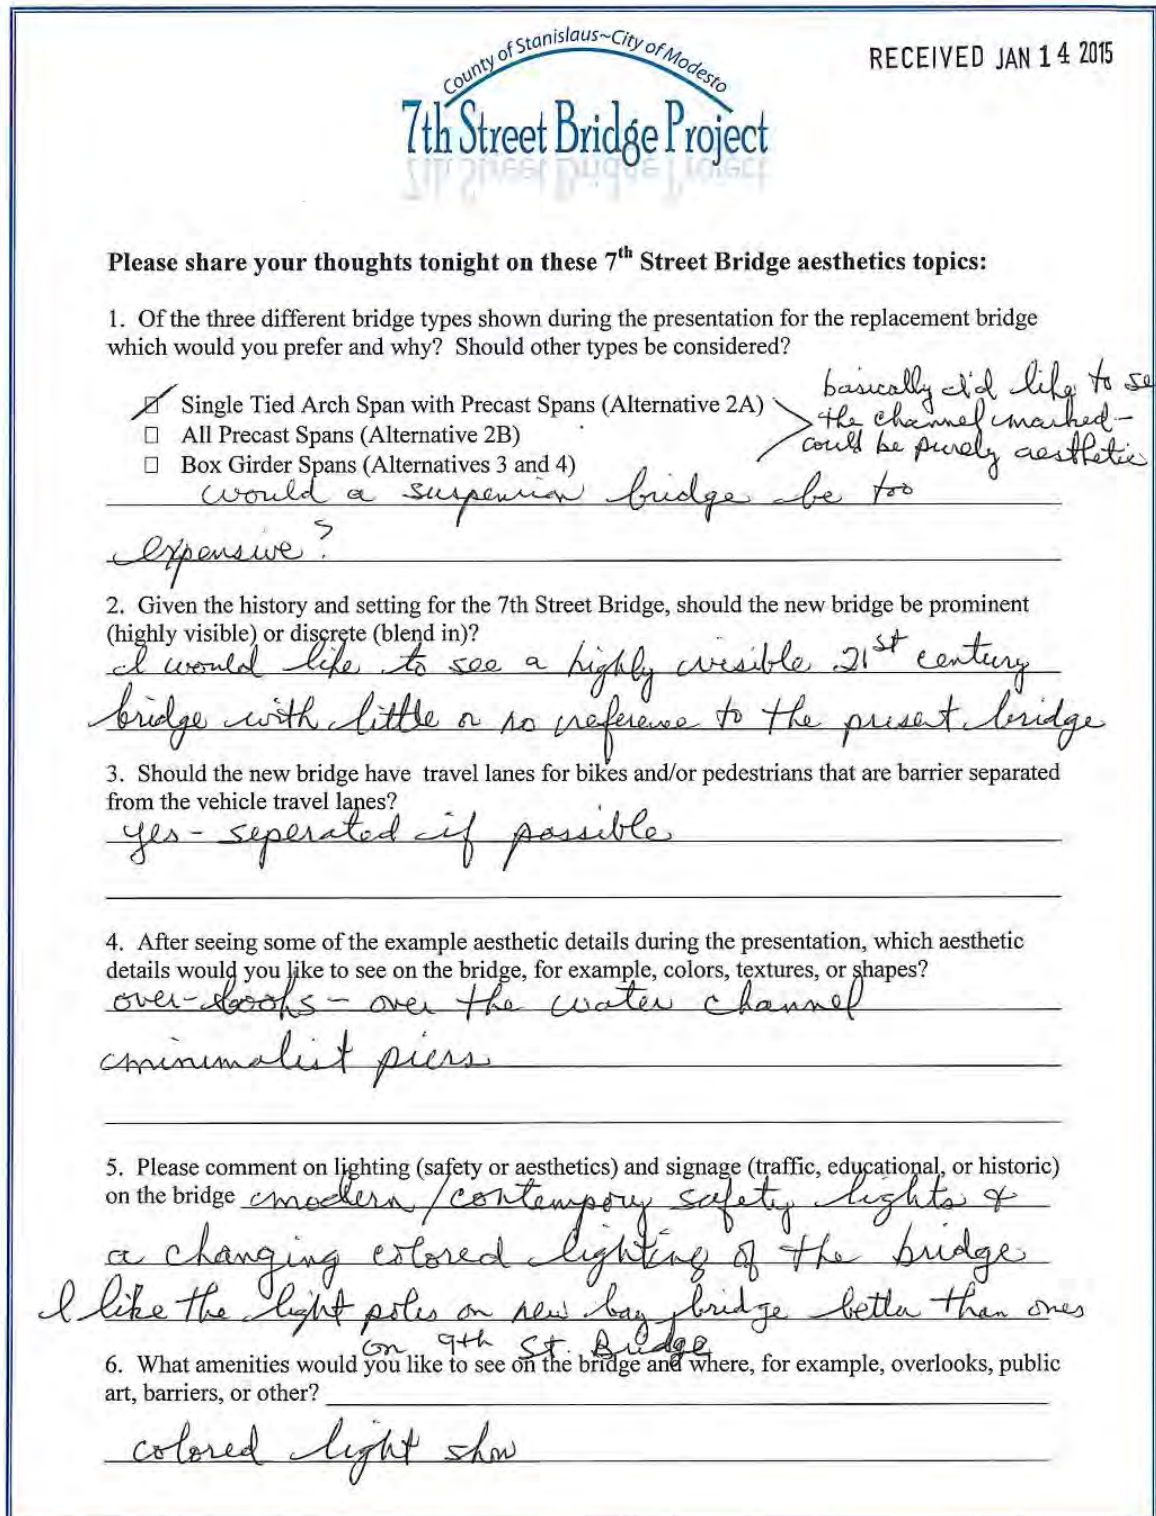 County of Stanislaus~City of Modesto
7th Street Bridge Project
RECEIVED JAN 14 2015
Please share your thoughts tonight on these 7th Street Bridge aesthetics topics:
1. Of the three different bridge types shown during the presentation for the replacement bridge
which would you prefer and why? Should other types be considered?
☑ Single Tied Arch Span with Precast Spans (Alternative 2A)
☐ All Precast Spans (Alternative 2B)
☐ Box Girder Spans (Alternatives 3 and 4)
basically I'd like to se
the channel marked -
could be purely aesthetic
would a suspenion bridge be too
expensive?
2. Given the history and setting for the 7th Street Bridge, should the new bridge be prominent
(highly visible) or discrete (blend in)?
I would like to see a highly visible 21st century
bridge with little or no reference to the present bridge
3. Should the new bridge have travel lanes for bikes and/or pedestrians that are barrier separated
from the vehicle travel lanes?
yes - seperated if possible
4. After seeing some of the example aesthetic details during the presentation, which aesthetic
details would you like to see on the bridge, for example, colors, textures, or shapes?
over-looks - over the water channel
minimalist piers
5. Please comment on lighting (safety or aesthetics) and signage (traffic, educational, or historic)
on the bridge modern/contempory safety lights &
a changing colored lighting of the bridge
I like the light poles on new bay bridge better than ones
on 9th St. Bridge
6. What amenities would you like to see on the bridge and where, for example, overlooks, public
art, barriers, or other?
colored light show